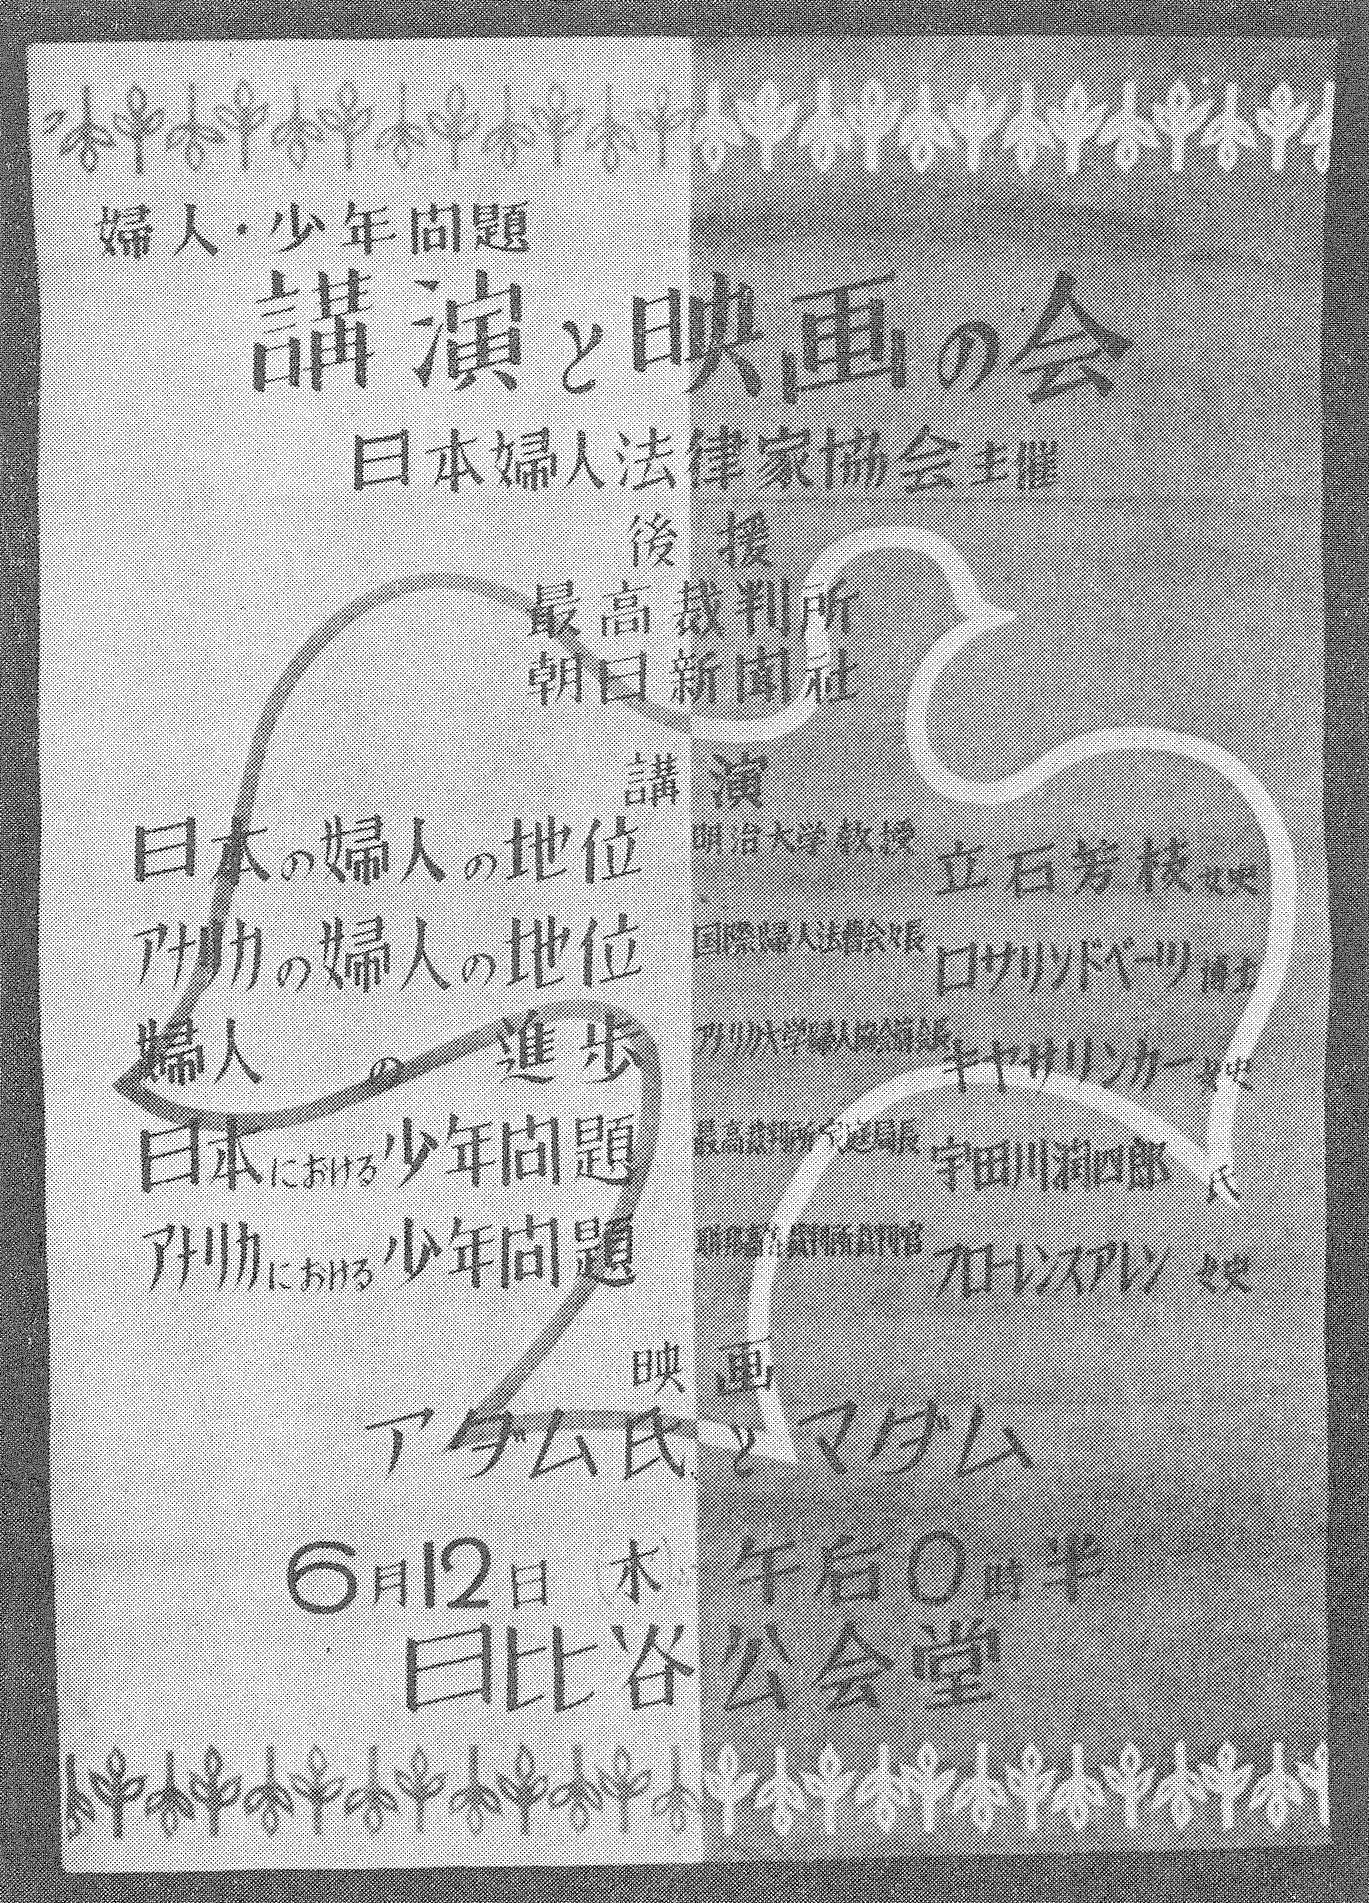 婦人・少年問題
講演と映画の会
日本婦人法律家協会主催
後援
最高裁判所
朝日新聞社
講演
日本の婦人の地位 明治大学教授 立石芳枝女史
アメリカの婦人の地位 国際婦人法曹会々長 ロザリンドベーツ博士
婦人の進歩 キャサリンカー女史
日本における少年問題 最高裁判所家庭局長 宇田川潤四郎氏
アメリカにおける少年問題 フローレンスアレン女史
映画
アダム氏とマダム
6月12日(木) 午后0時半
日比谷公会堂